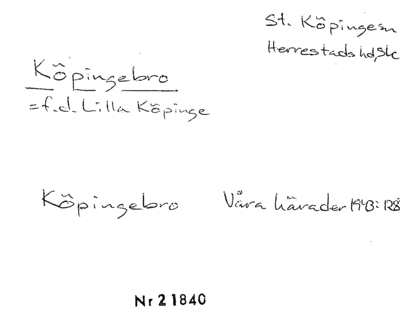 St. Köpinge sn
Herrestads hd, Sk
Köpingebro
= f.d. Lilla Köpinge
Köpingebro Våra härader 1943: 128
Nr 21840